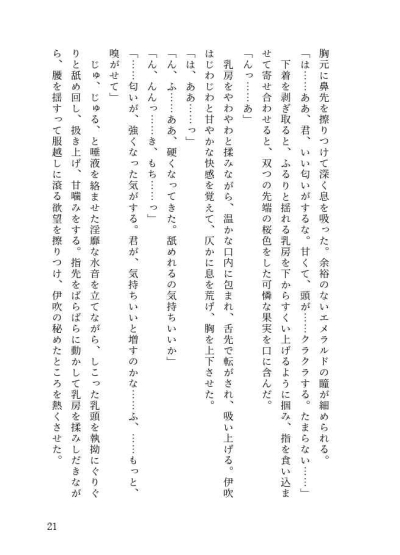 胸元に鼻先を擦りつけて深く息を吸った。余裕のないエメラルドの瞳が細められる。
「は……ああ、君、いい匂いがするな。甘くて、頭が……クラクラする。たまらない……」
下着を剥ぎ取ると、ふるりと揺れる乳房を下からすくい上げるように掴み、指を食い込ま
せて寄せ合わせると、双つの先端の桜色をした可憐な果実を口に含んだ。
「んっ……あ」
乳房をやわやわと揉みながら、温かな口内に包まれ、舌先で転がされ、吸い上げる。伊吹
はじわじわと甘やかな快感を覚えて、仄かに息を荒げ、胸を上下させた。
「は、ああ……っ」
「ん、ふ……ああ、硬くなってきた。舐めれるの気持ちいいか」
「ん、んんっ……き、もち……っ」
「……匂いが、強くなった気がする。君が、気持ちいいと増すのかな……ふ、……もっと、
嗅がせて」
じゅ、じゅる、と唾液を絡ませた淫靡な水音を立てながら、しこった乳頭を執拗にぐりぐ
りと舐め回し、扱き上げ、甘噛みをする。指先をばらばらに動かして乳房を揉みしだきなが
ら、腰を揺すって服越しに滾る欲望を擦りつけ、伊吹の秘めたところを熱くさせた。
21